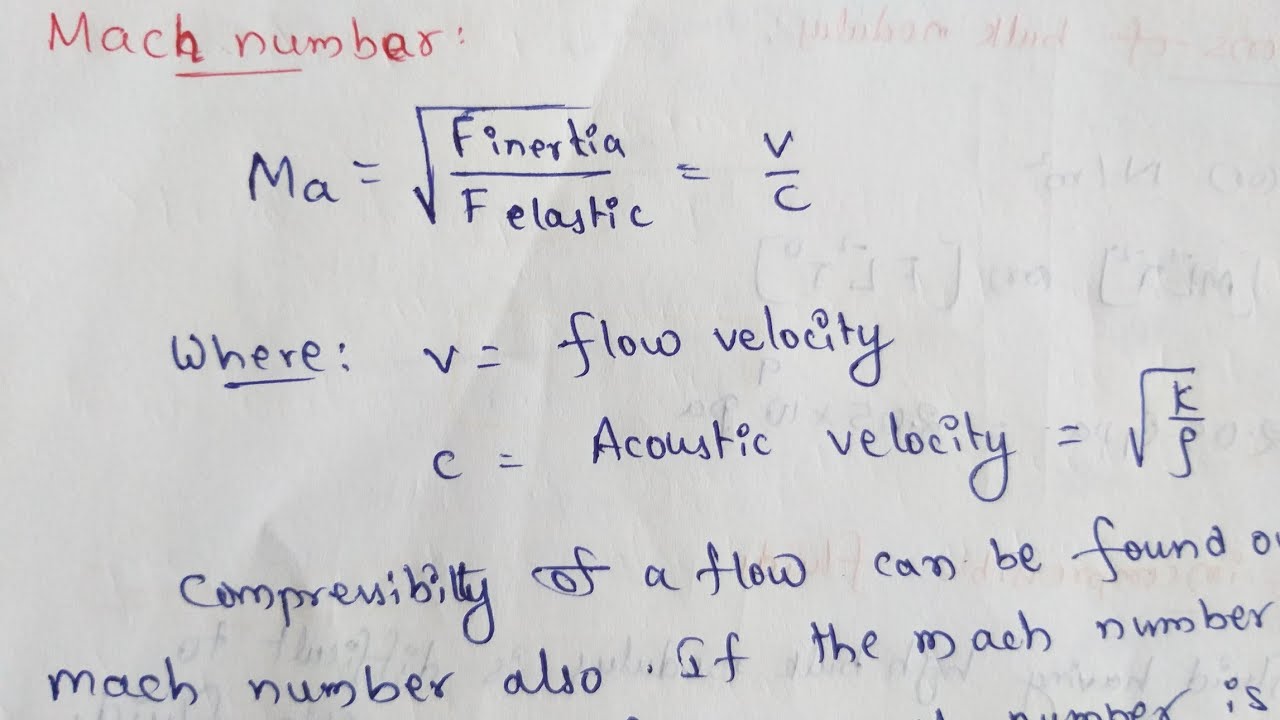 Mach number:
Ma = √(Finertia / Felastic) = v/c
Where: v = flow velocity
c = Acoustic velocity = √(k/ρ)
Compressibilty of a flow can be found
mach number also. If the mach number
number is